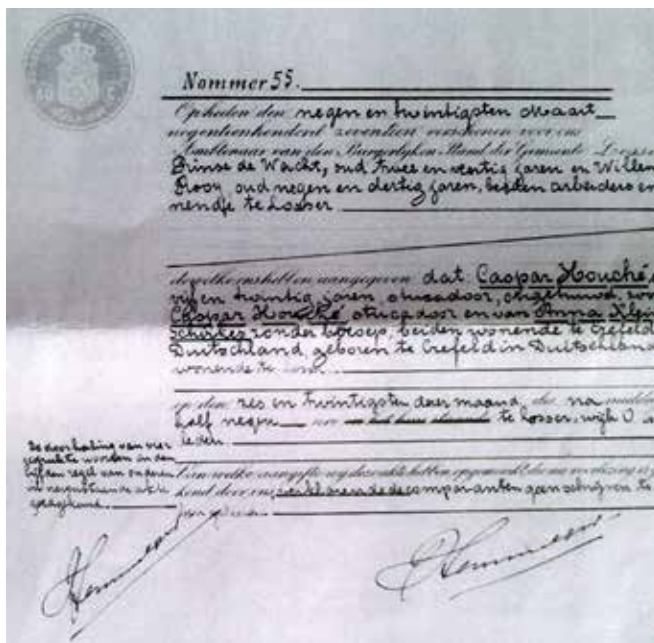 Nommer 55.
Op heden den negen en twintigsten Maart
negentienhonderd zeventien verschenen voor ons
Ambtenaar van den Burgerlijken Stand der Gemeente Losser
Prinse de Wacht, oud twee en veertig jaren en Willem
Rooy oud negen en dertig jaren, beiden arbeiders
te Losser
dewelke ons hebben aangegeven dat Caspar Houché,
en twintig jaren, stucadoor, ongehuwd, zoon
Caspar Houché stucadoor en van Anna Klein
Scherkes zonder beroep, beiden wonende te Crefeld
Duitschland, geboren te Crefeld in Duitschland
wonende te
op den zes en twintigsten dezer maand, des na middags
half negen te Losser, wijk O
is overleden
De doorhaling van vier
gedrukte woorden in den
vijfden regel van onderen
goedgekeurd.
Van welke aangifte wij deze akte hebben opgemaakt, die na voorlezing is
kend door ons, verklarende de comparanten geen schrijven te